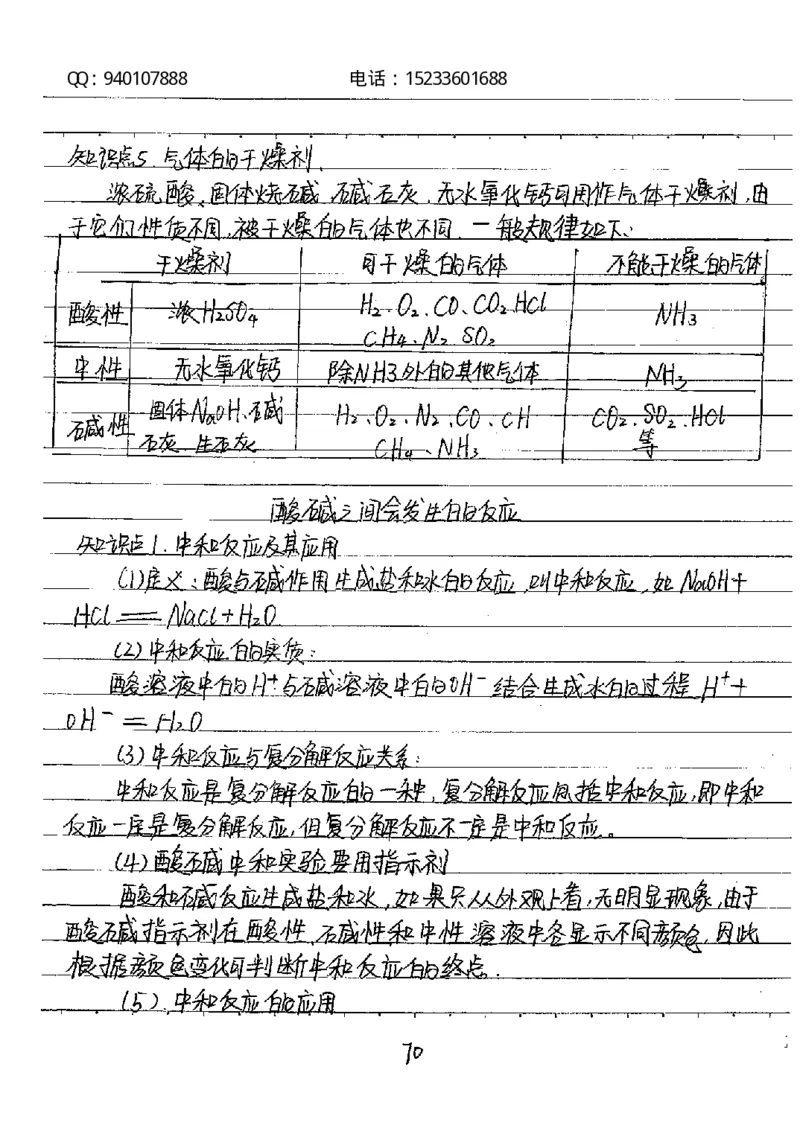 QQ：940107888 电话：15233601688
知识点5.气体的干燥剂、
浓硫酸、固体烧碱、碱石灰、无水氧化钙可用作气体干燥剂,由
于它们性质不同,被干燥的气体也不同.一般规律如下:
干燥剂 可干燥的气体 不能干燥的气体
酸性 浓H2SO4 H2、O2、CO、CO2 HCl NH3
CH4、N2 SO2
中性 无水氧化钙 除NH3外的其他气体 NH3
碱性 固体NaOH、碱 H2、O2、N2、CO、CH CO2、SO2、HCl
石灰 生石灰 CH4、NH3 等
酸碱之间会发生的反应
知识点1.中和反应及其应用
(1)定义:酸与碱作用生成盐和水的反应,叫中和反应,如NaOH+
HCl══NaCl+H2O
(2)中和反应的实质:
酸溶液中的H+与碱溶液中的OH-结合生成水的过程 H++
OH-═H2O
(3)中和反应与复分解反应关系:
中和反应是复分解反应的一种,复分解反应包括中和反应,即中和
反应一定是复分解反应,但复分解反应不一定是中和反应。
(4)酸碱中和实验要用指示剂
酸和碱反应生成盐和水,如果只从外观上看,无明显现象,由于
酸碱指示剂在酸性、碱性和中性溶液中各显示不同颜色,因此
根据颜色变化可判断中和反应的终点.
(5).中和反应的应用
70